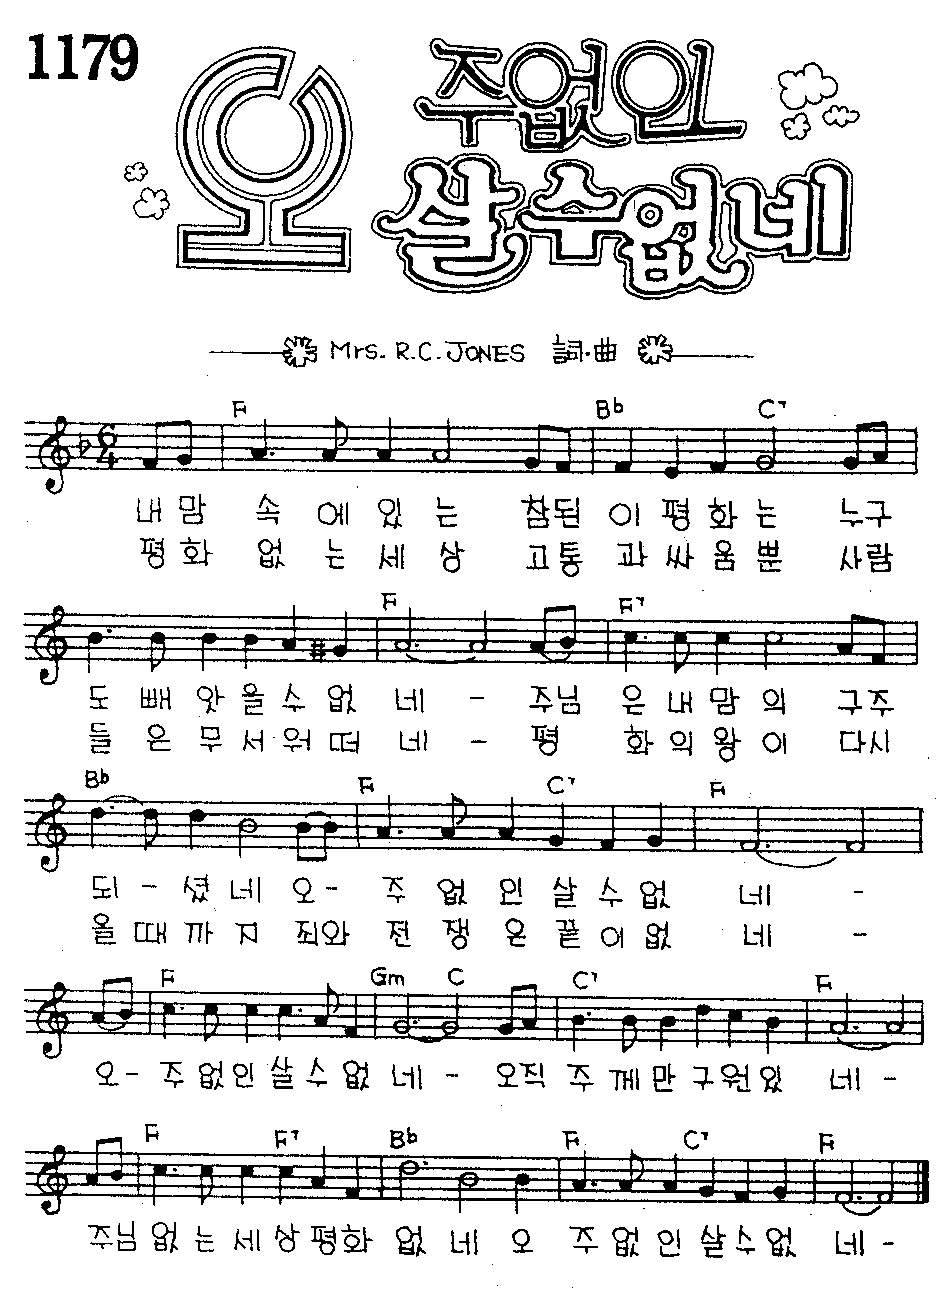 1179
오
주없인
살수없네
Mrs. R.C. JONES 詞·曲
F Bb C7
6
4
내 맘 속 에 있 는 참된 이 평 화 는 누구
평 화 없 는 세 상 고통 과 싸 움 뿐 사람
F F7
도 빼 앗 을 수 없 네 - 주님 은 내 맘 의 구주
들 은 무 서 워 떠 네 - 평 화 의 왕 이 다시
Bb F C7 F
되 - 셨 네 오 - 주 없 인 살 수 없 네 -
올 때 까 지 죄와 전 쟁 은 끝 이 없 네 -
F Gm C C7 F
오 - 주 없 인 살 수 없 네 - 오직 주 께 만 구 원 있 네 -
F F7 Bb F C7 F
주님 없 는 세 상 평 화 없 네 오 주 없 인 살 수 없 네 -